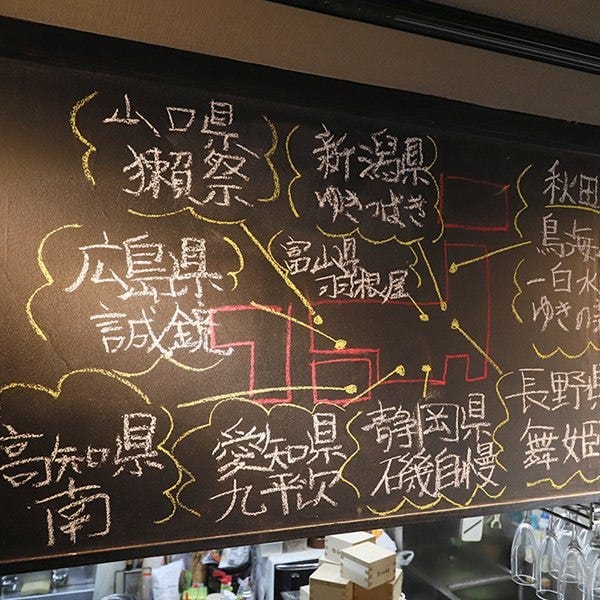 山口県
獺祭
新潟県
ゆきつばき
秋田
鳥海
一白水
ゆきの美
広島県
誠鏡
富山県
羽根屋
長野県
舞姫
高知県
南
愛知県
九平次
静岡県
磯自慢